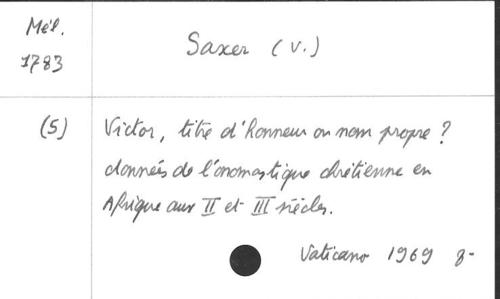 Mél.
1783
Saxer (V.)
(5)
Victor, titre d'honneur ou nom propre ?
données de l'onomastique chrétienne en
Afrique aux II et III siècles.
Vaticano 1969 8-